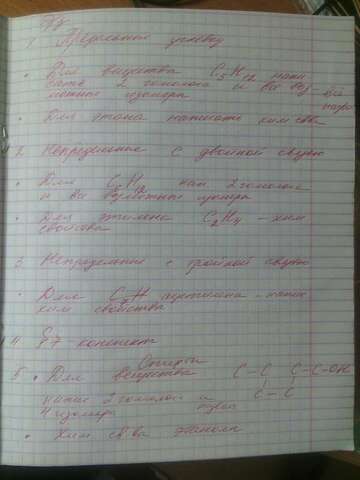 1 Предельные углевод
• Для вещества C5H12 напи
сать 2 гомолога и все воз-
можные изомеры
• Для этана написать хим св-ва
2 Непредельные с двойной связью
• Для нап. 2 гомолога
и все возможные изомеры
• Для этилена C2H4 - хим
свойства
3 Непредельные с тройной связью
• Для ацетилена - напис
хим свойства
4 конспект
Спирты
5 • Для вещества C-C-C-C-OH
C-C
напис 2 гомолога и
4 изомера
• Хим св-ва этанола